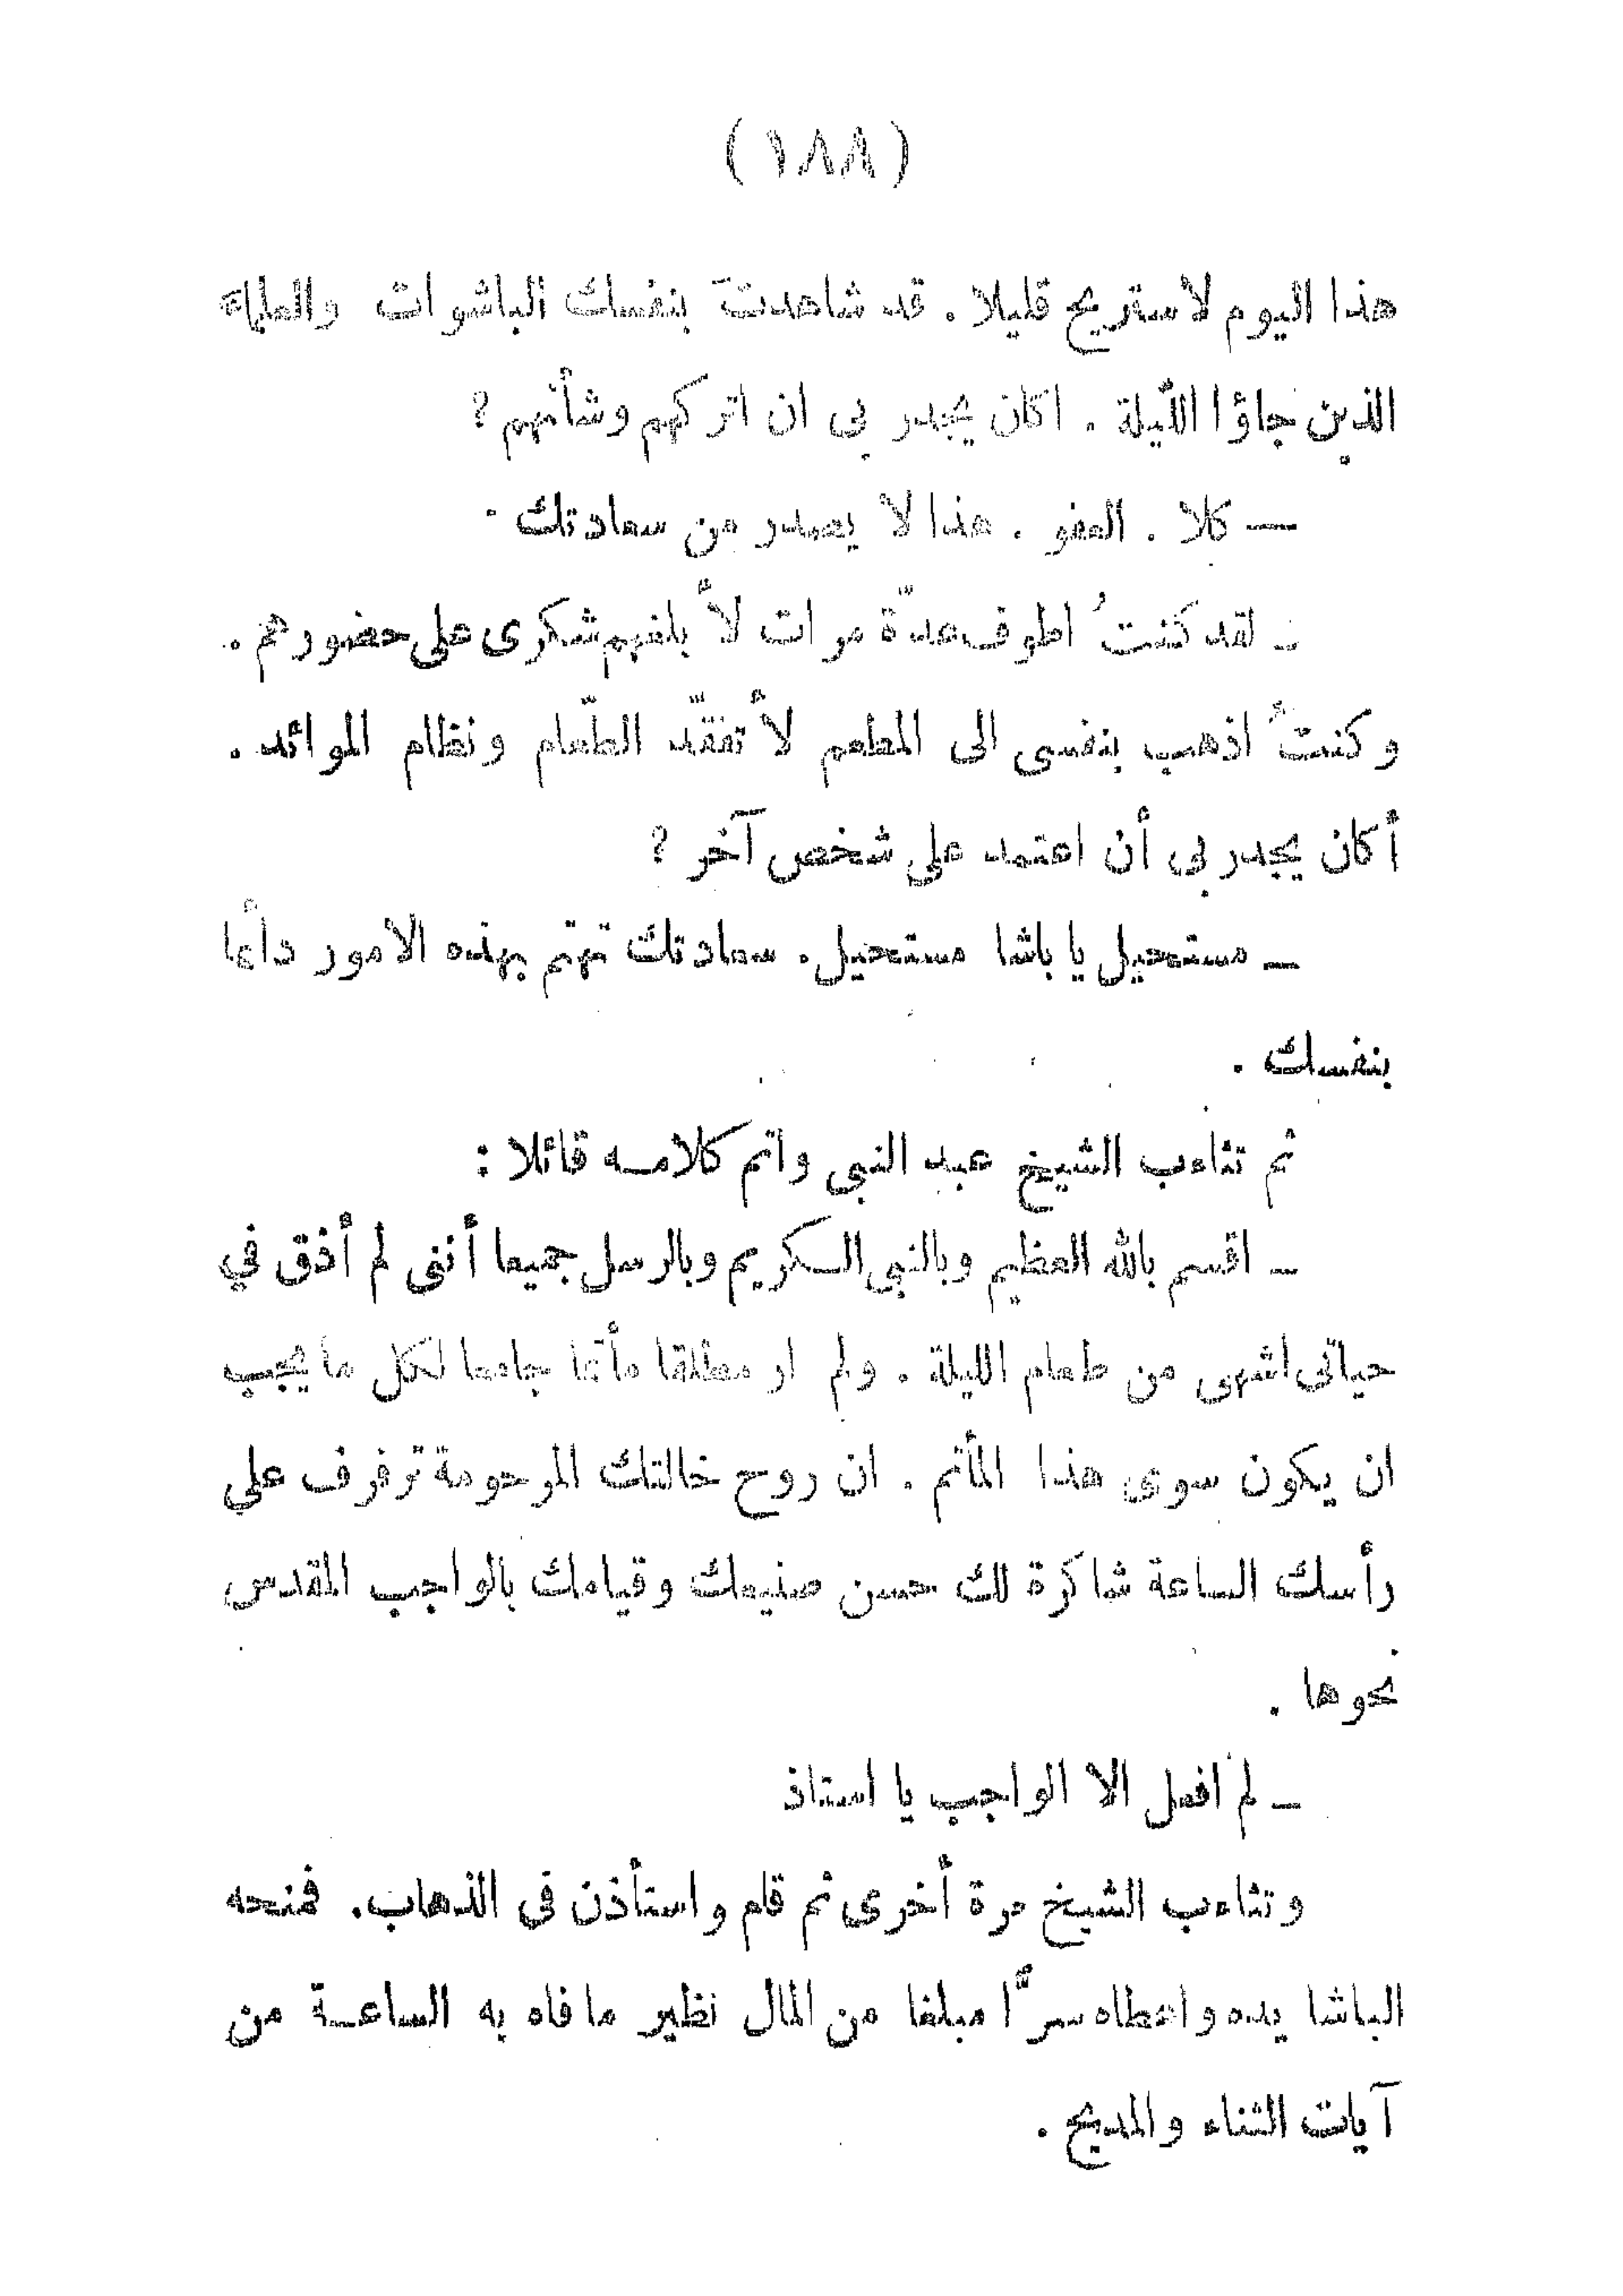 (١٨٨)
هذا اليوم لاستريح قليلا . قد شاهدتَ بنفسك الباشوات والعلماء
الذين جاؤا اللّيلة . اكان يجدر بى ان اتركهم وشأنهم ؟
— كلا . العفو . هذا لا يصدر من سعادتك .
ـ لقد كنتُ اطوف عدّة مرات لأبلغهم شكرى على حضورهم .
وكنتُ اذهب بنفسى الى المطعم لأتفقّد الطّعام ونظام الموائد .
أكان يجدر بى أن اعتمد على شخص آخر ؟
ـ مستحيل يا باشا مستحيل . سعادتك تهتم بهذه الامور دائما
بنفسك .
ثم تثاءب الشيخ عبد النبى واتم كلامه قائلا :
ـ اقسم بالله العظيم وبالنبى الكريم وبالرسل جميعا أننى لم أذق في
حياتى اشهى من طعام الليلة . ولم ار مطلقا مأتما جامعا لكل ما يجب
ان يكون سوى هذا المأتم . ان روح خالتك المرحومة ترفرف على
رأسك الساعة شاكرة لك حسن صنيعك وقيامك بالواجب المقدس
نحوها .
ـ لم افعل الا الواجب يا استاذ
وتثاءب الشيخ مرة أخرى ثم قام واستأذن فى الذهاب . فمنحه
الباشا يده واعطاه سرًّا مبلغا من المال نظير ما فاه به الساعة من
آيات الثناء والمديح .